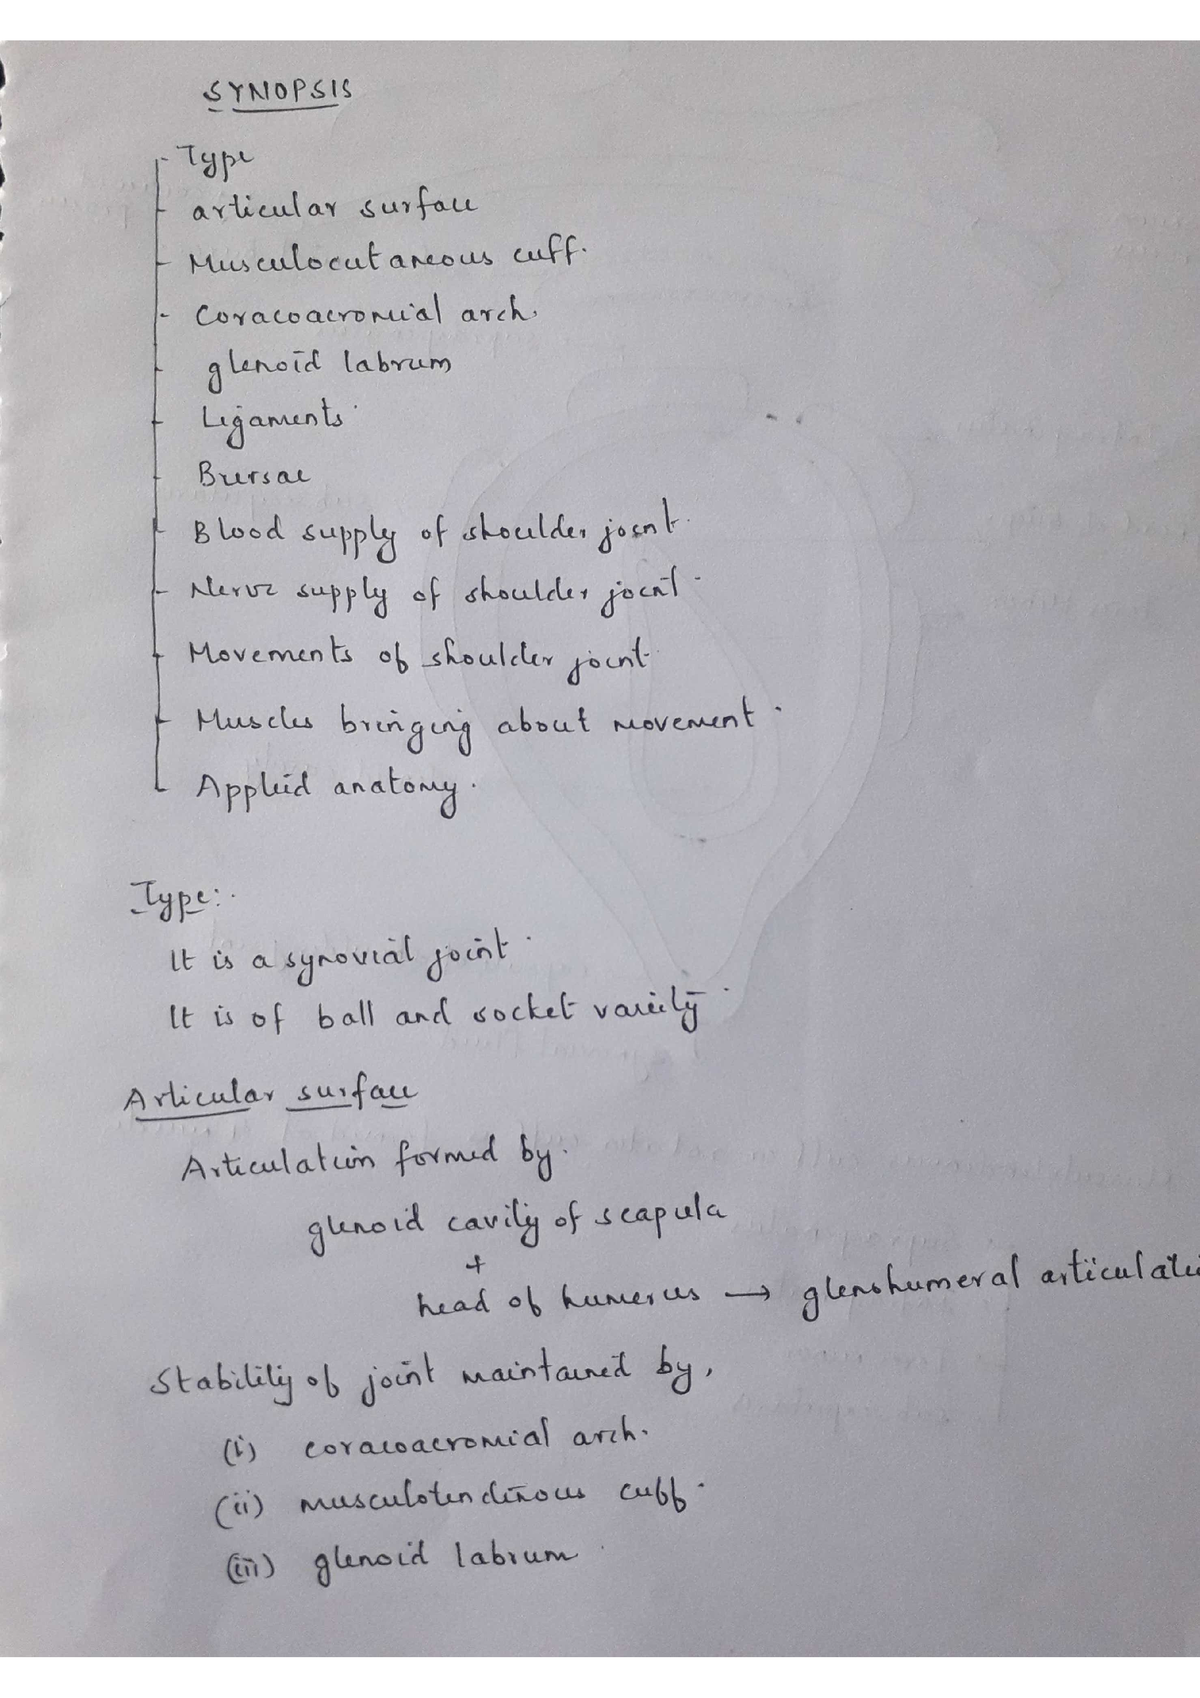 SYNOPSIS
- Type
- articular surface
- Musculocutaneous cuff.
- Coracoacromial arch.
- glenoid labrum
- Ligaments
- Bursae
- Blood supply of shoulder joint.
- Nerve supply of shoulder joint
- Movements of shoulder joint
- Muscles bringing about movement.
- Applied anatomy.
Type:-
It is a synovial joint.
It is of ball and socket variety.
Articular surface
Articulation formed by.
glenoid cavity of scapula
+
head of humerus → glenohumeral articulati
Stability of joint maintained by,
(i) coracoacromial arch.
(ii) musculotendinous cuff.
(iii) glenoid labrum